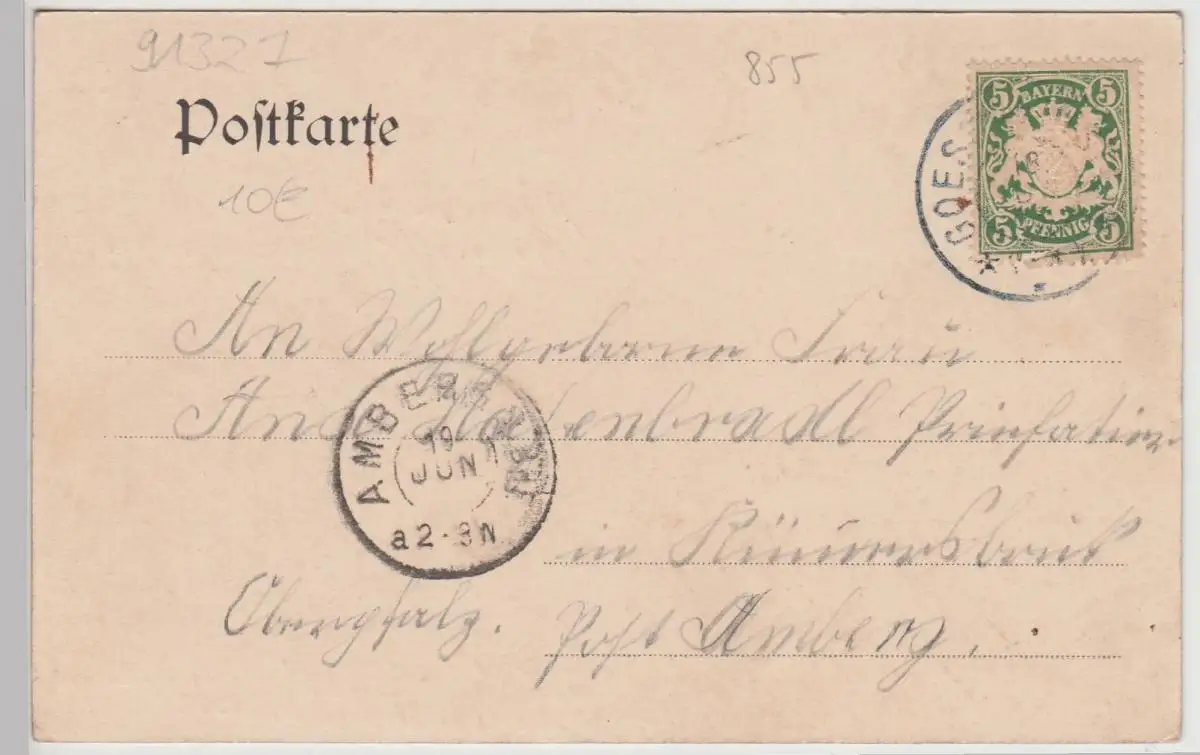 91327
855
Postkarte
10€
5 BAYERN 5
5 PFENNIG 5
GOES
An Wohlgeborne Frau
Privatier
AMBERG
19 JUN
a2-3N
in
Oberpfalz. Post Amberg.